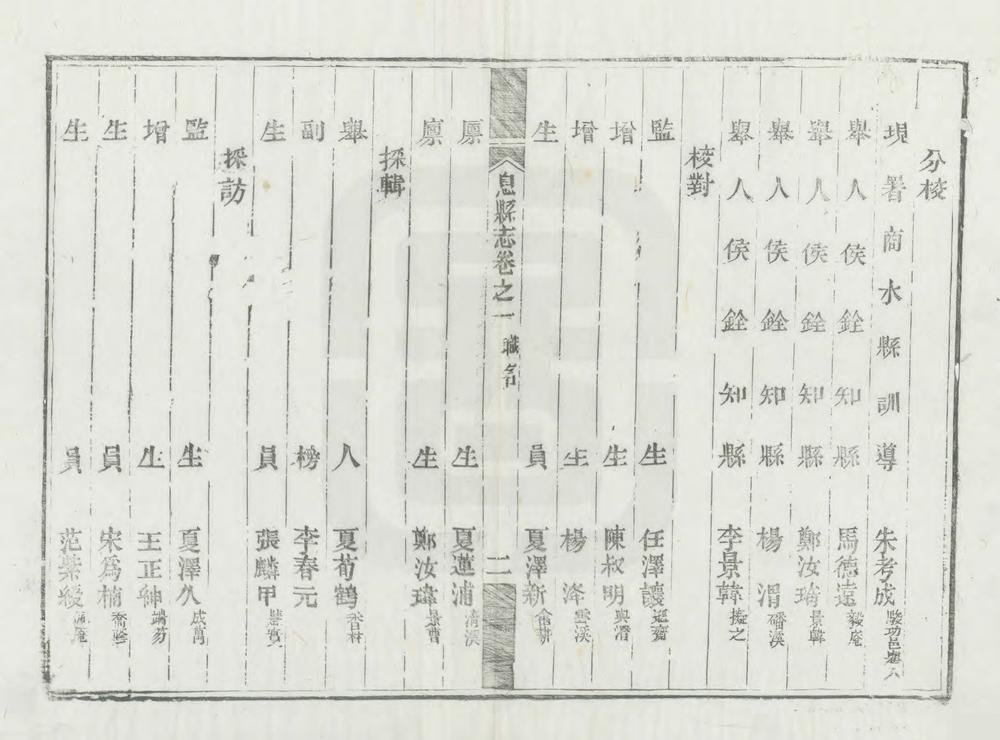 分校
現署商水縣訓導朱考成駿功邑舉人
舉人侯銓知縣馬德遠毅庵
舉人侯銓知縣鄭汝琦景韓
舉人侯銓知縣楊渭磻溪
舉人侯銓知縣李景韓擬之
校對
監生任澤讓
增生陳椒明與澄
增生楊洚雲溪
生員夏澤新
息縣志卷之一 職名 二
廩生夏蓮浦清溪
廩生鄭汝瑋景曹
採輯
舉人夏荀鶴香林
副榜李春元
生員張麟甲慧實
採訪
監生夏澤久成萬
增生王正紳端笏
生員宋爲楠喬壑
生員范紫綬